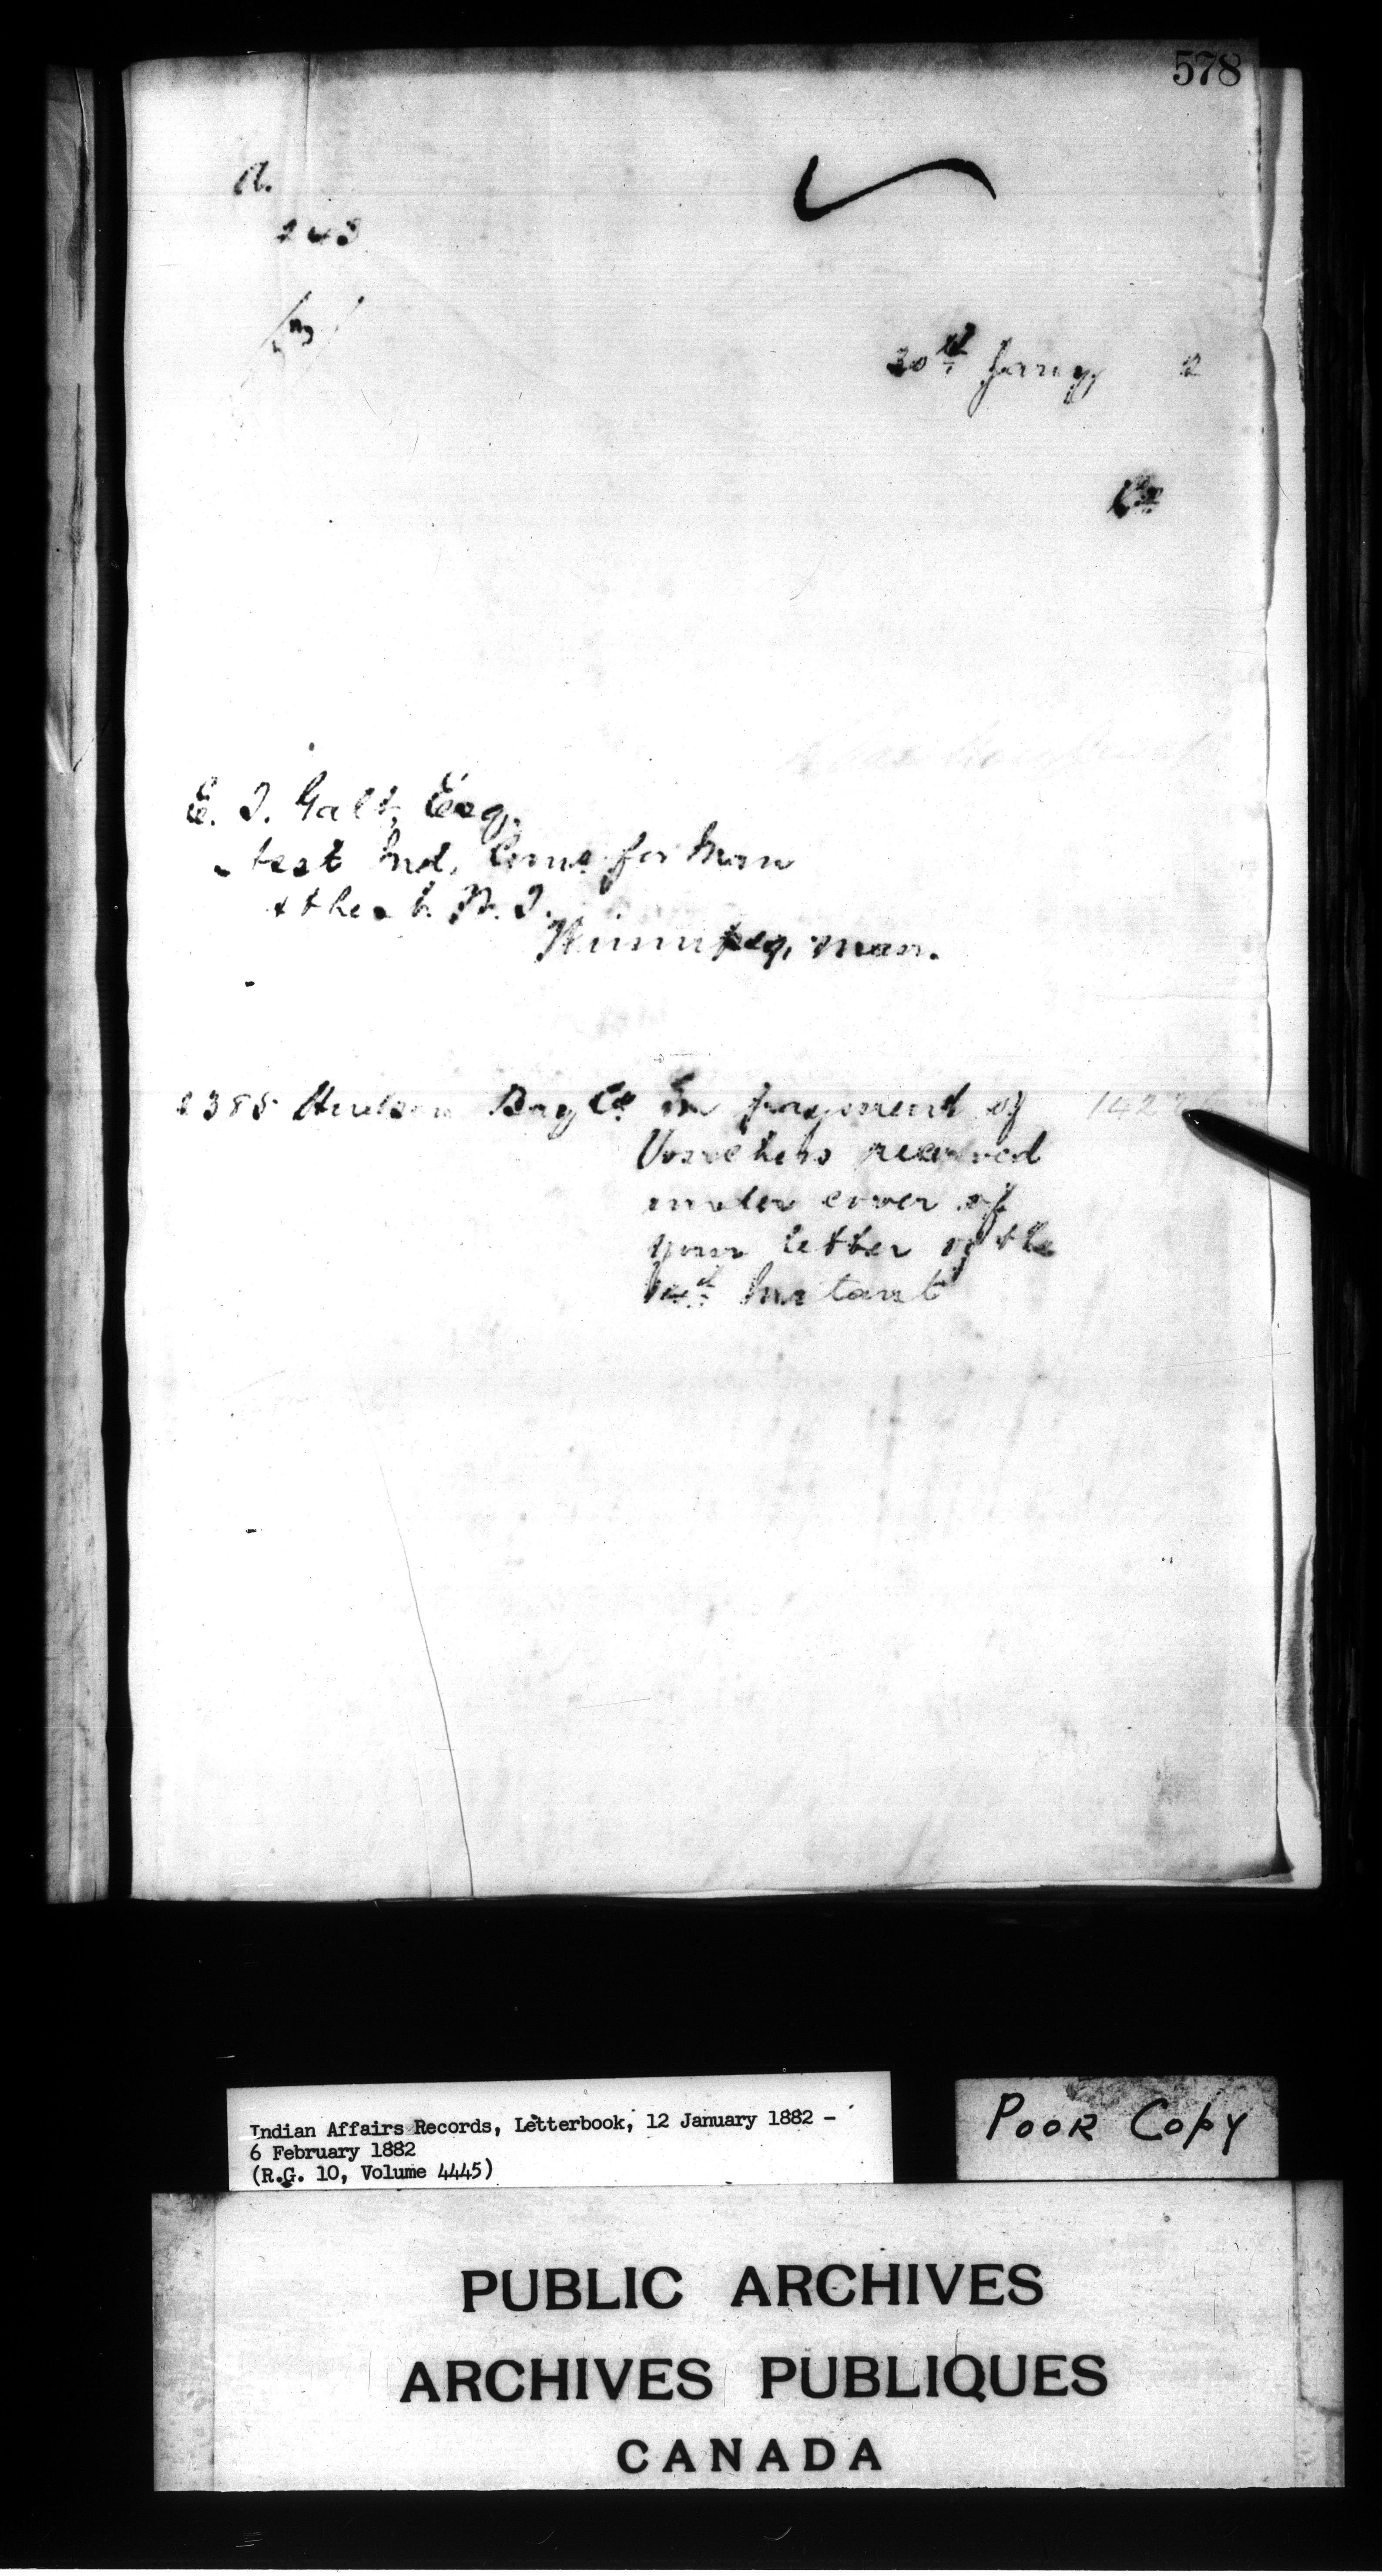 578
A.
243
20th Jany, 2
E. T. Galt, Esq,
Asst Ind. Coms for Man
& the N. W. T.
Winnipeg, Man.
2385 Hudson Bay Co In payment of 142
Vouchers received
under cover of
your letter of the
14th Instant
Indian Affairs Records, Letterbook, 12 January 1882 -
6 February 1882
(R.G. 10, Volume 4445)
POOR COPY
PUBLIC ARCHIVES
ARCHIVES PUBLIQUES
CANADA